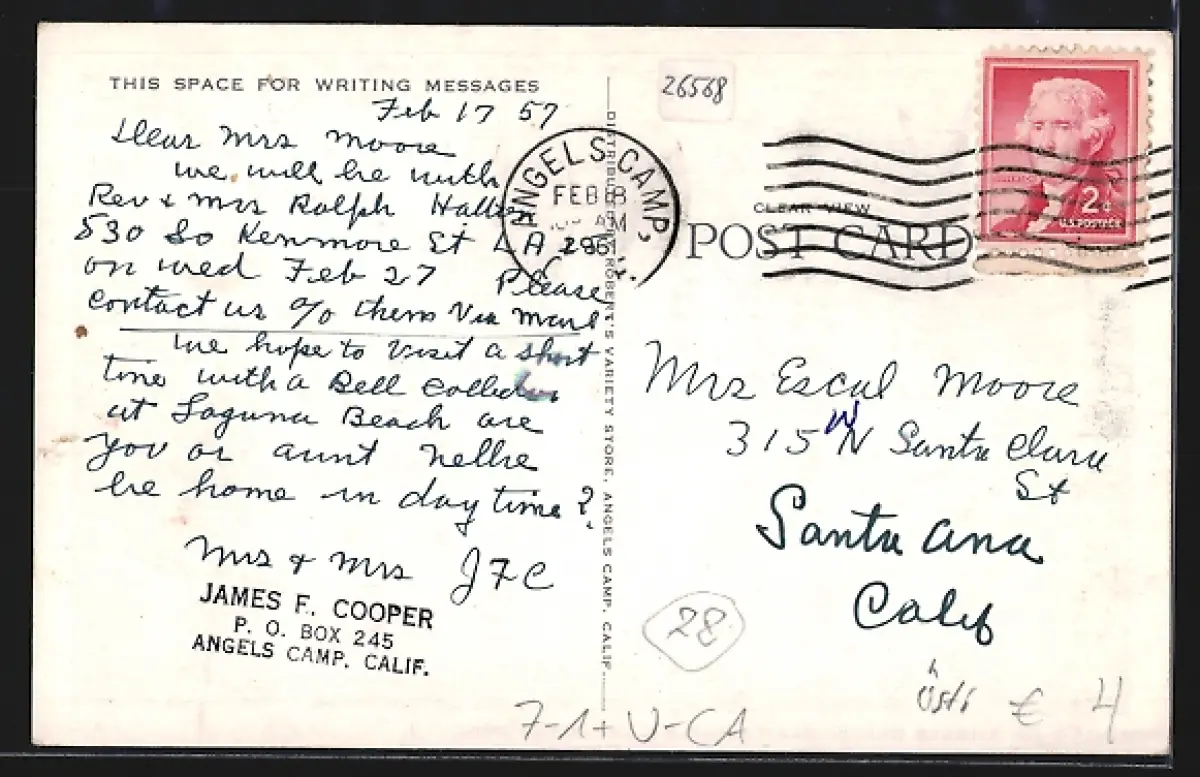 THIS SPACE FOR WRITING MESSAGES
Feb 17 57
Dear Mrs Moore
we will be with
Rev & Mrs Ralph
530 So Kenmore St L A
on wed Feb 27 Please
contact us c/o them Via Mail
we hope to visit a short
time with a Bell
at Laguna Beach are
you or aunt Nellie
be home in day time?
Mrs & Mrs JFC
JAMES F. COOPER
P. O. BOX 245
ANGELS CAMP, CALIF.
DISTRIBUTED ROBERT'S VARIETY STORE, ANGELS CAMP, CALIF.
26568
ANGELS CAMP,
FEB 18
AM
CLEAR VIEW
POST CARD
2¢
U.S. POSTAGE
Mrs Moore
315 N Santa Clara
St
Santa Ana
Calif
28
7-1+ U-CA
€ 4